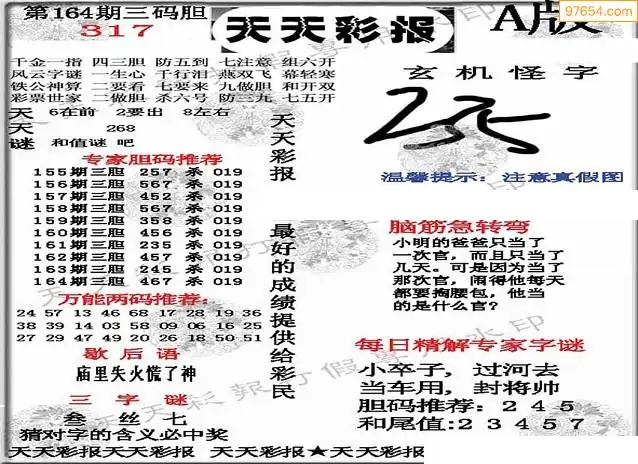 第164期三码胆
317
天天彩报
A版
97654.com
千金一指 四三胆 防五到 七注意 组六开
风云字谜 一生心 千行泪 燕双飞 幕轻寒
铁公神算 二要看 七要来 九做胆 和开双
彩票世家 二做胆 杀六号 防三九 七五开
天 6在前 2要出 8左右
天 268
谜 和值谜 吧
专家胆码推荐
155期三胆 257 杀 019
156期三胆 567 杀 019
157期三胆 452 杀 019
158期三胆 567 杀 019
159期三胆 358 杀 019
160期三胆 456 杀 019
161期三胆 235 杀 019
162期三胆 457 杀 019
163期三胆 245 杀 019
164期三胆 467 杀 019
万能两码推荐:
24 57 13 46 68 17 28 19 36
38 39 14 03 58 09 06 16 25
27 29 47 49 20 26 18 50 51
歇后语
庙里失火慌了神
三字谜
叁丝七
猜对字的含义必中奖
天天彩报
最好的成绩提供给彩民
玄机怪字
温馨提示:注意真假图
脑筋急转弯
小明的爸爸只当了
一次官,而且只当了
几天。可是因为当了
那次官,闹得他每天
都要掏腰包,他当
的是什么官?
每日精解专家字谜
小卒子,过河去
当车用,封将帅
胆码推荐:245
和尾值:23457
天天彩报天天彩报 天天彩报★天天彩报